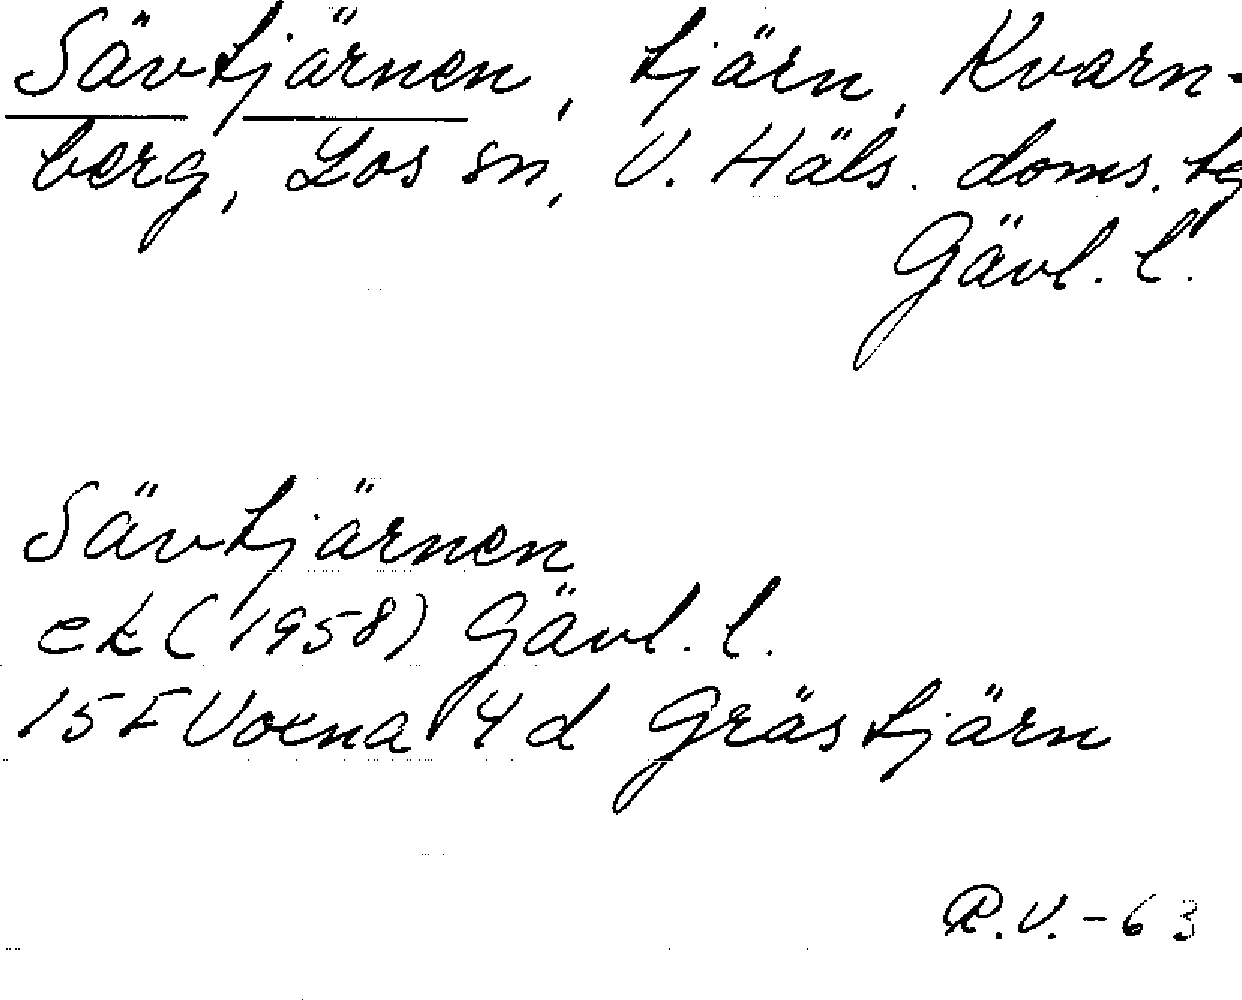 Sävtjärnen, tjärn, Kvarn-
berg, Los sn, V. Häls. doms. tg
Gävl. l.
Sävtjärnen
ek (1958) Gävl. l.
15 F Voxna 4 d Grästjärn
R.V. - 63